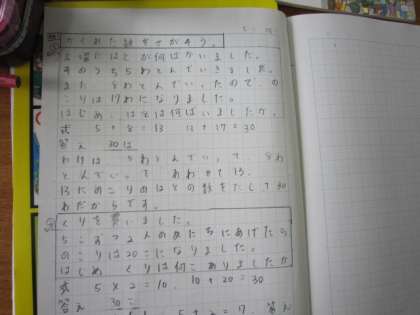 かくれた数をさがそう。
公園にはとが何はかいました。
そのうち5わとんでいきました。
また 8わとんでいったので、の
こりは17わになりました。
はじめ、はとは何ばいましたか。
式 5+8=13 13+17=30
答え 30は
わけは 5わとんでいって 8わ
とんでいって あわせて13.
13にのこりのはとの数をたして30
わだからです。
くりを買いました。
5こずつ2人の友だちにあげたら
のこりは20こになりました。
はじめ くりは何こありましたか
式 5×2=10. 10+20=30
答え 30こ
5+2=7. 答え